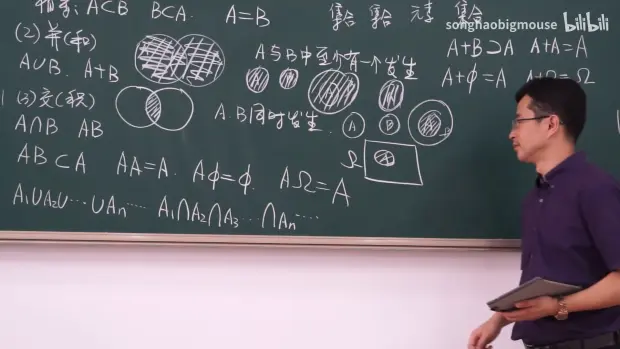 相等: A⊂B B⊂A. A=B
集合 集合 元素 集合
songhaobigmouse bilibili
(2) 并(和)
A∪B. A+B
A与B中至少有一个发生
A+B⊃A A+A=A
A+φ=A A+Ω=Ω
(3) 交(积)
A∩B AB
A.B同时发生.
A B
Ω A
AB⊂A AA=A. Aφ=φ. AΩ=A
A₁∪A₂∪…∪Aₙ…… A₁∩A₂∩A₃…∩Aₙ……